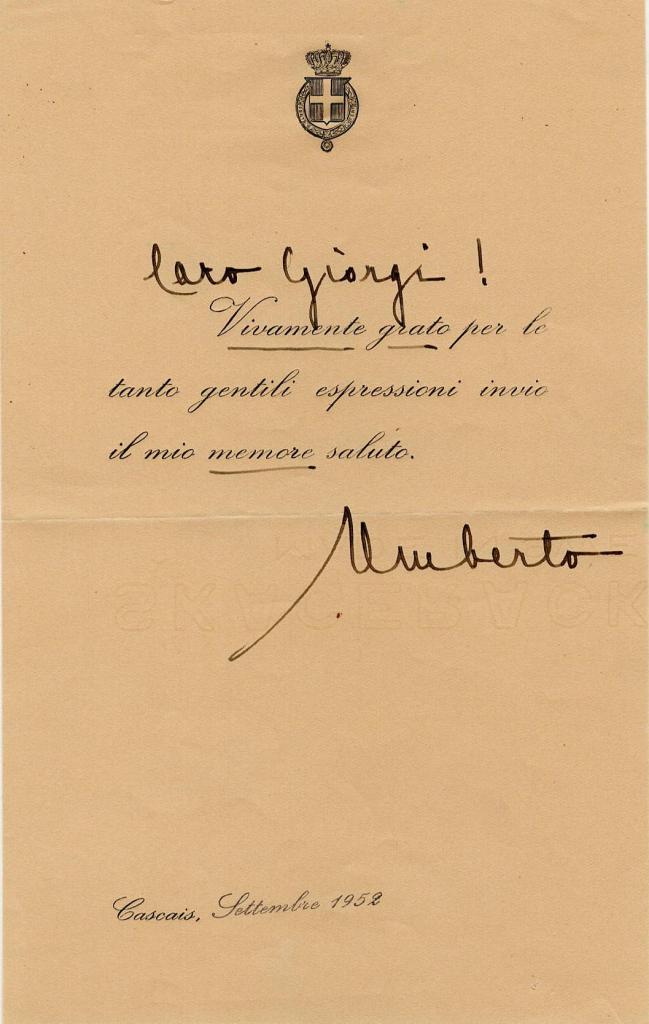 Caro Giorgi !
Vivamente grato per le
tanto gentili espressioni invio
il mio memore saluto.
Umberto
Cascais, Settembre 1952